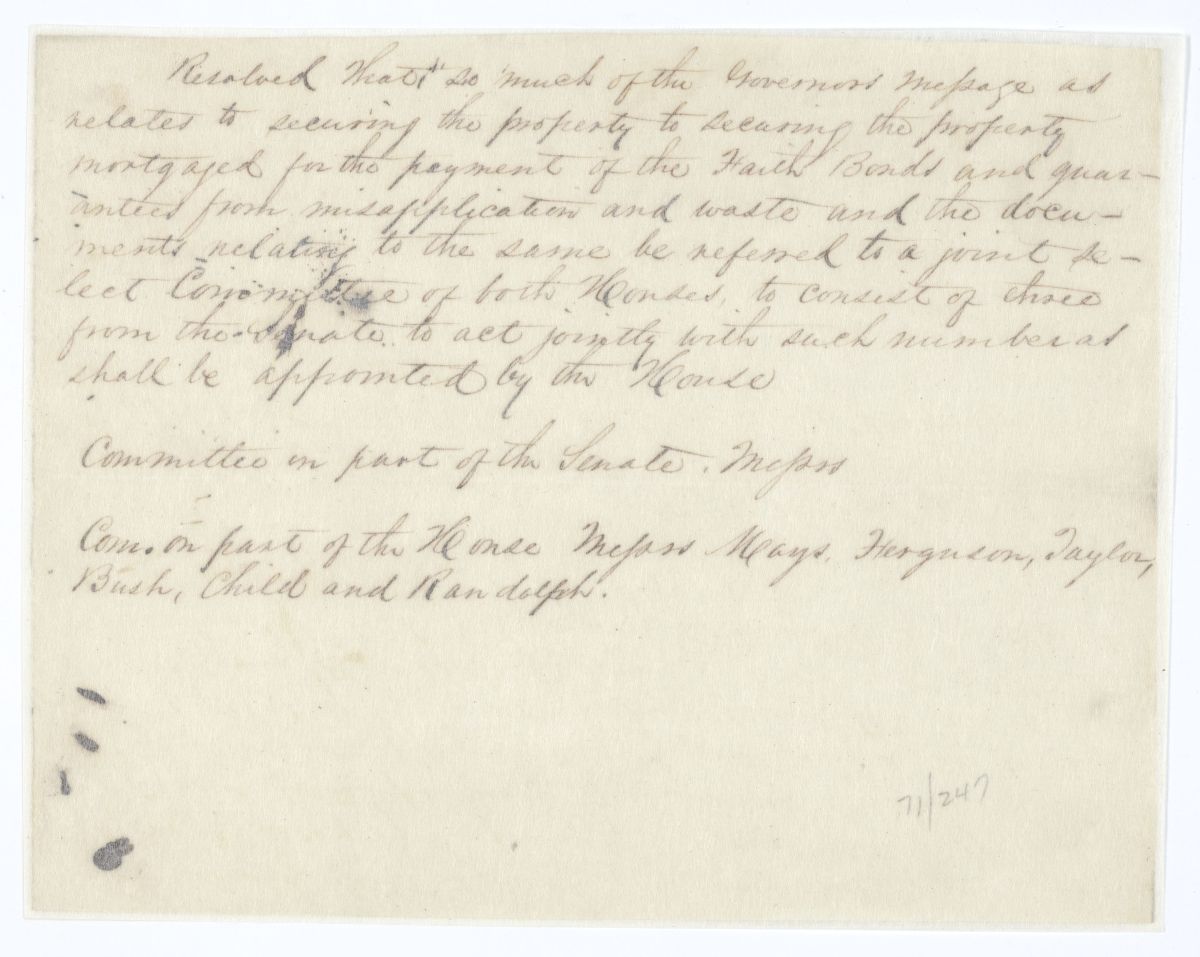 Resolved That so much of the Governors Message as
relates to securing the property to securing the property
mortgaged for the payment of the Faith Bonds and guar-
antees from misapplication and waste and the docu-
ments relating to the same be referred to a joint se-
lect Committee of both Houses, to consist of three
from the Senate to act jointly with such number as
shall be appointed by the House
Committee on part of the Senate. Messrs
Com. on part of the House Messrs Mays, Ferguson, Taylor,
Bush, Child and Randolph.
71/247